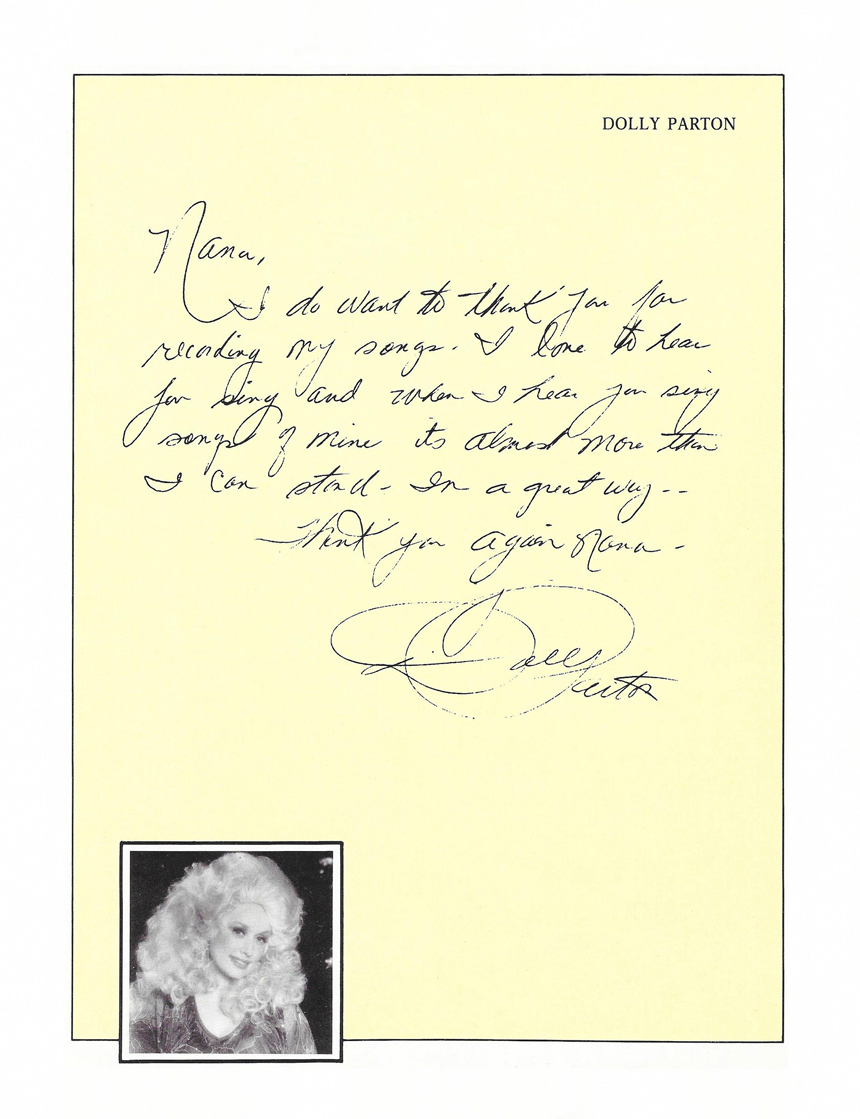 DOLLY PARTON
Nana,
I do want to thank you for
recording my songs. I love to hear
you sing and when I hear you sing
songs of mine its almost more than
I can stand - In a great way --
Thank you again Nana -
Dolly Parton